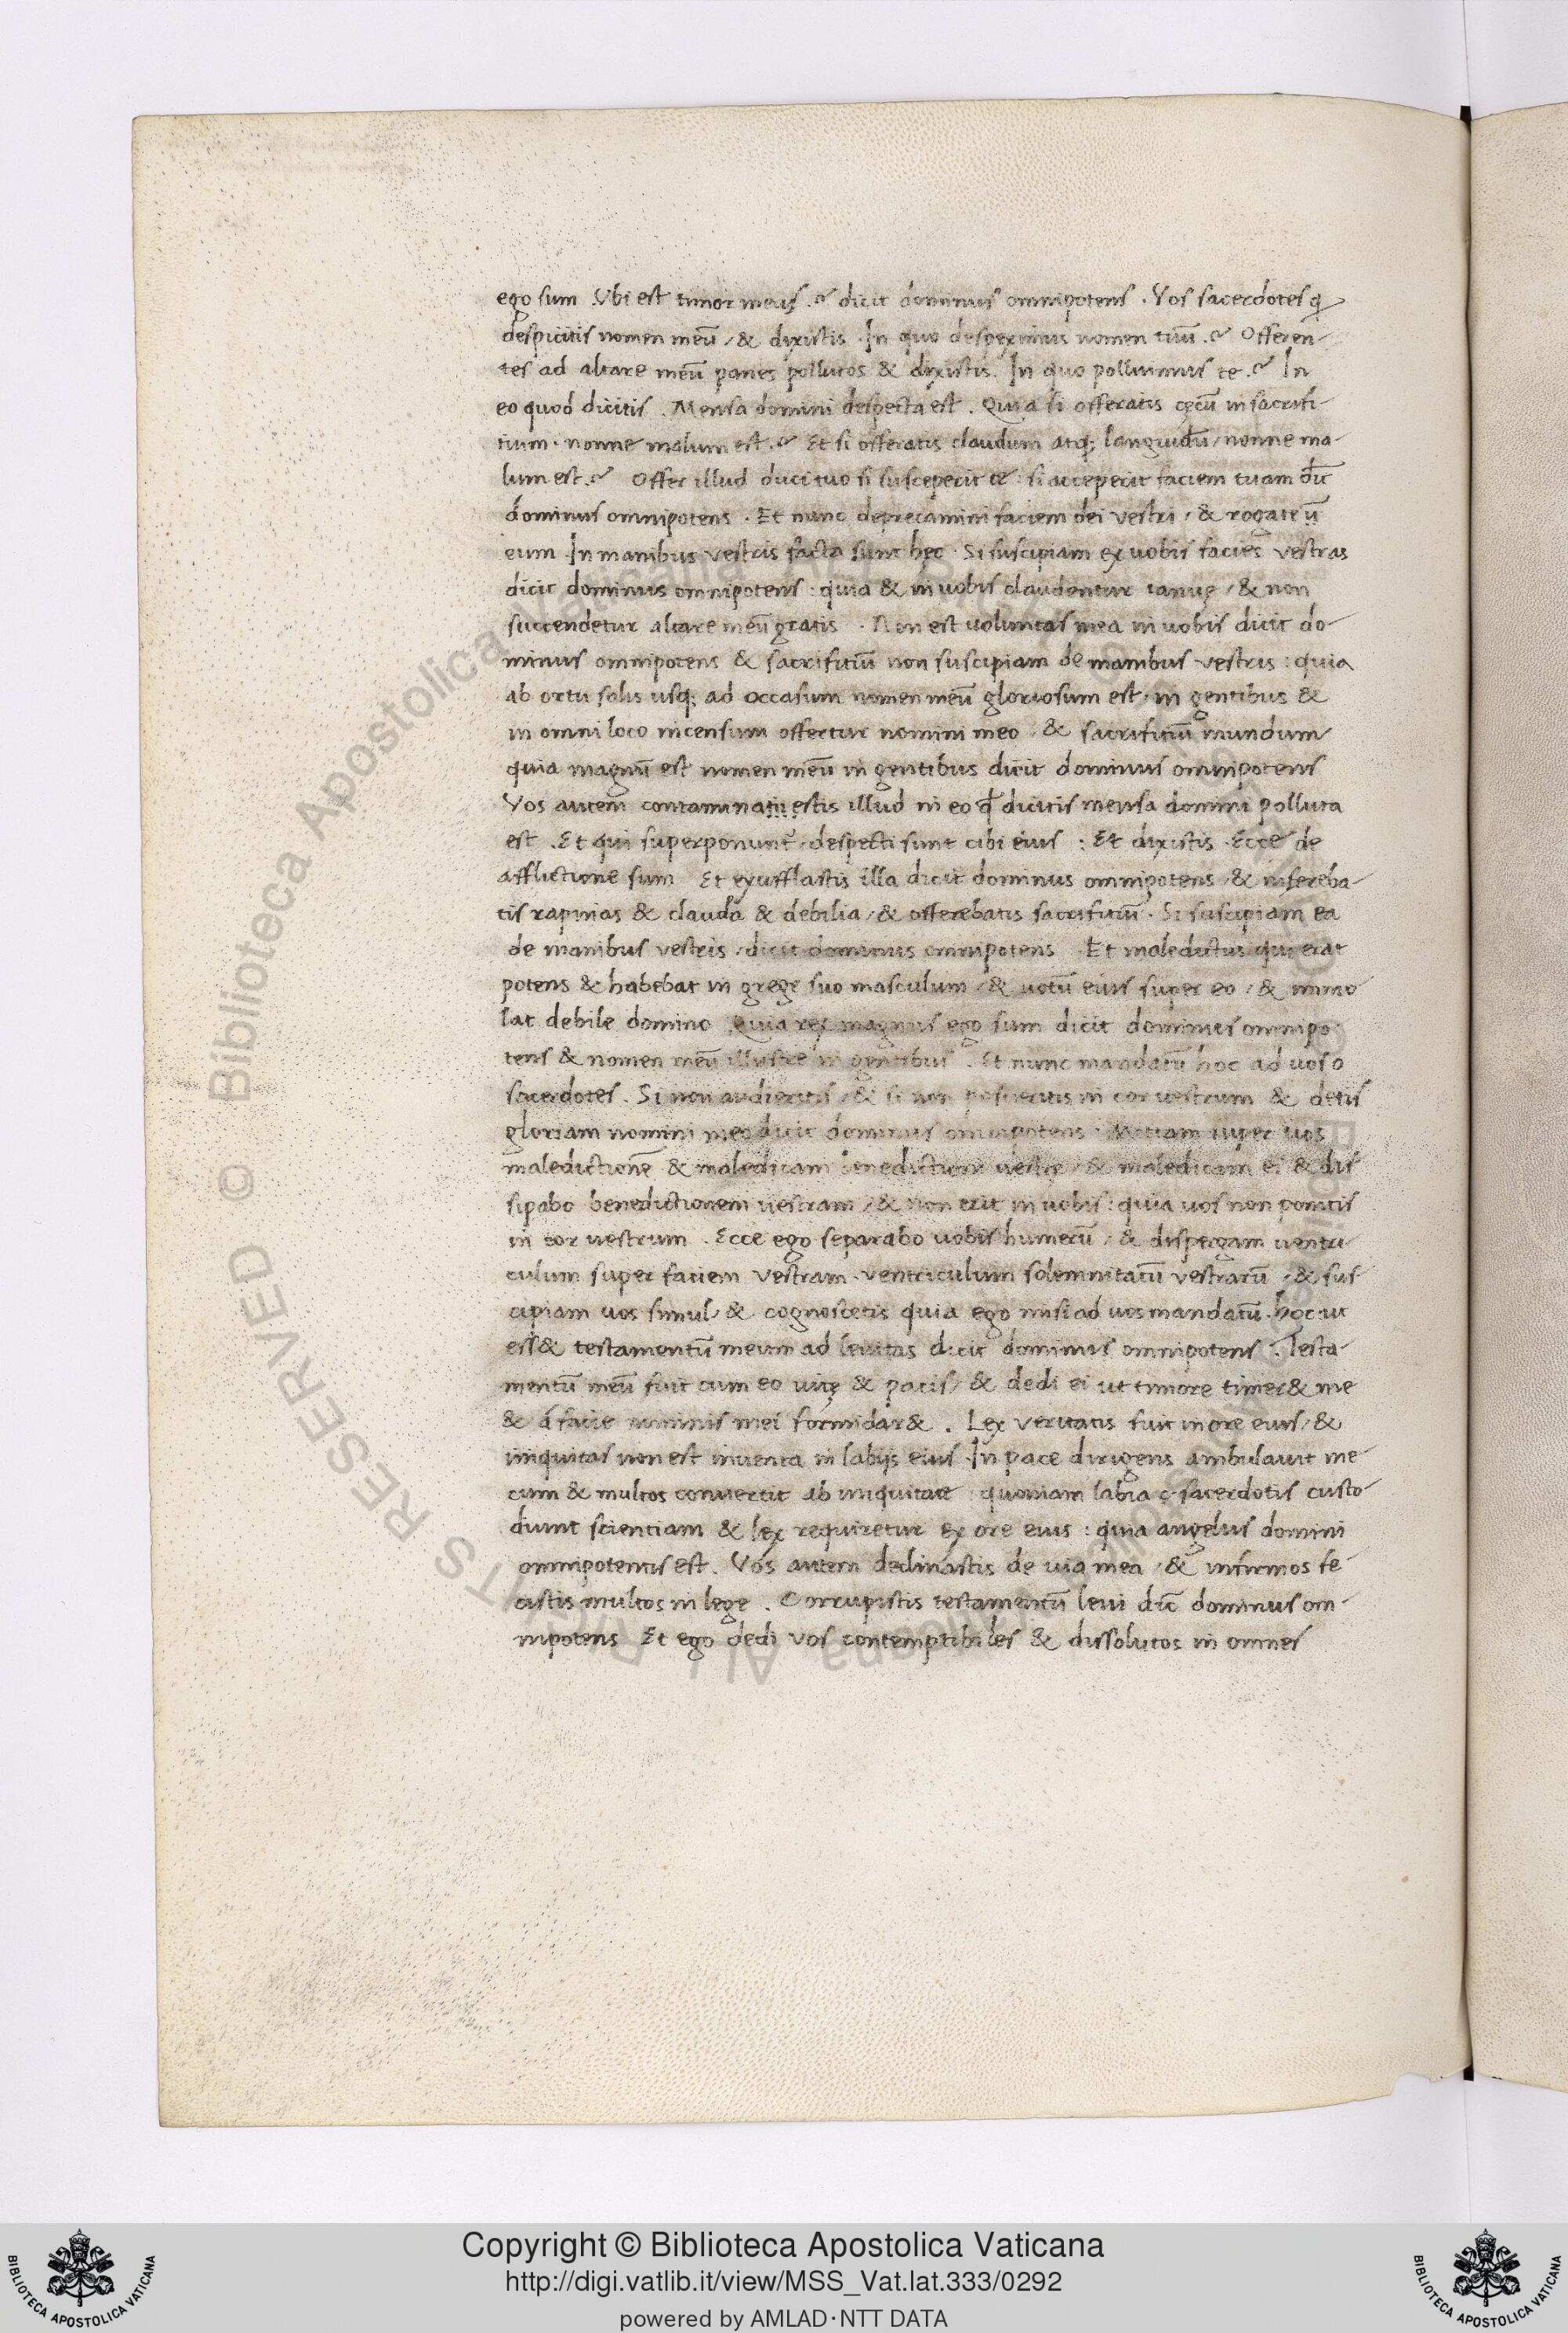 ego sum . Vbi est timor meus .? dicit dominus omnipotens . Vos sacerdotes q
despicitis nomen meū / & dixistis . In quo despeximus nomen tuū .? Offeren-
tes ad altare meū panes pollutos & dixistis . In quo polluimus te .? In
eo quod dicitis . Mensa domini despecta est . Quia si offeratis cęcū in sacrifi-
tium . nonne malum est .? Et si offeratis claudum atq; languidū / nonne ma-
lum est .? Offer illud duci tuo si susceperit te : si acceperit faciem tuam dīc
dominus omnipotens . Et nunc deprecamini faciem dei vestri / & rogate
eum . In manibus vestris facta sunt hęc . Si suscipiam ex uobis facies vestras
dicit dominus omnipotens : quia & in uobis claudentur ianuę / & non
succendetur altare meū gratis . Non est uoluntas mea in uobis dicit do-
minus omnipotens & sacrifitiū non suscipiam de manibus vestris : quia
ab ortu solis usq; ad occasum nomen meū gloriosum est in gentibus &
in omni loco incensum offertur nomini meo / & sacrifitiū mundum
quia magnū est nomen meū in gentibus dicit dominus omnipotens
Vos autem contaminatis estis illud in eo qd dicitis mensa domini polluta
est . Et qui superponunt / despecti sunt cibi eius : Et dixistis . Ecce de
afflictione sum Et exufflastis illa dicit dominus omnipotens / & infereba-
tis rapinas & clauda & debilia / & offerebatis sacrifitiū . Si suscipiam ea
de manibus vestris / dicit dominus omnipotens . Et maledictus qui erat
potens & habebat in grege suo masculum / & uotū eius super eo / & immo
lat debile domino . Quia rex magnus ego sum dicit dominus omnipo
tens & nomen meū illustre in gentibus . Et nunc mandatū hoc ad uos o
sacerdotes . Si non audieritis / & si non posueritis in cor vestrum & detis
gloriam nomini meo dicit dominus omnipotens . Mittam super uos
maledictionē & maledicam benedictioni vestrę / & maledicam ei & dis
sipabo benedictionem uestram / & non erit in uobis : quia uos non ponitis
in cor uestrum . Ecce ego separabo uobis humerū / & dispergam uentri
culum super faciem vestram . ventriculum solemnitatū vestrarū / & sus
cipiam uos simul / & cognoscetis quia ego misi ad uos mandatū hoc : ut
ess& testamentū meum ad leuitas dicit dominus omnipotens . Testa-
mentū meū fuit cum eo uitę & pacis / & dedi ei ut timore timer& me
& a facie nominis mei formidar& . Lex veritatis fuit in ore eius / &
iniquitas non est inuenta in labijs eius . In pace dirigens ambulauit me-
cum & multos conuertit ab iniquitate : quoniam labia sacerdotis custo-
diunt scientiam & lex requiretur ex ore eius : quia angelus domini
omnipotentis est . Vos autem declinastis de uia mea / & infirmos fe-
cistis multos in lege . Corrupistis testamentū leui dīc dominus om-
nipotens Et ego dedi vos contemptibiles & dissolutos in omnes
© Biblioteca Apostolica Vaticana ALL RIGHTS RESERVED
Copyright © Biblioteca Apostolica Vaticana
http://digi.vatlib.it/view/MSS_Vat.lat.333/0292
powered by AMLAD·NTT DATA
BIBLIOTECA APOSTOLICA VATICANA
BIBLIOTECA APOSTOLICA VATICANA